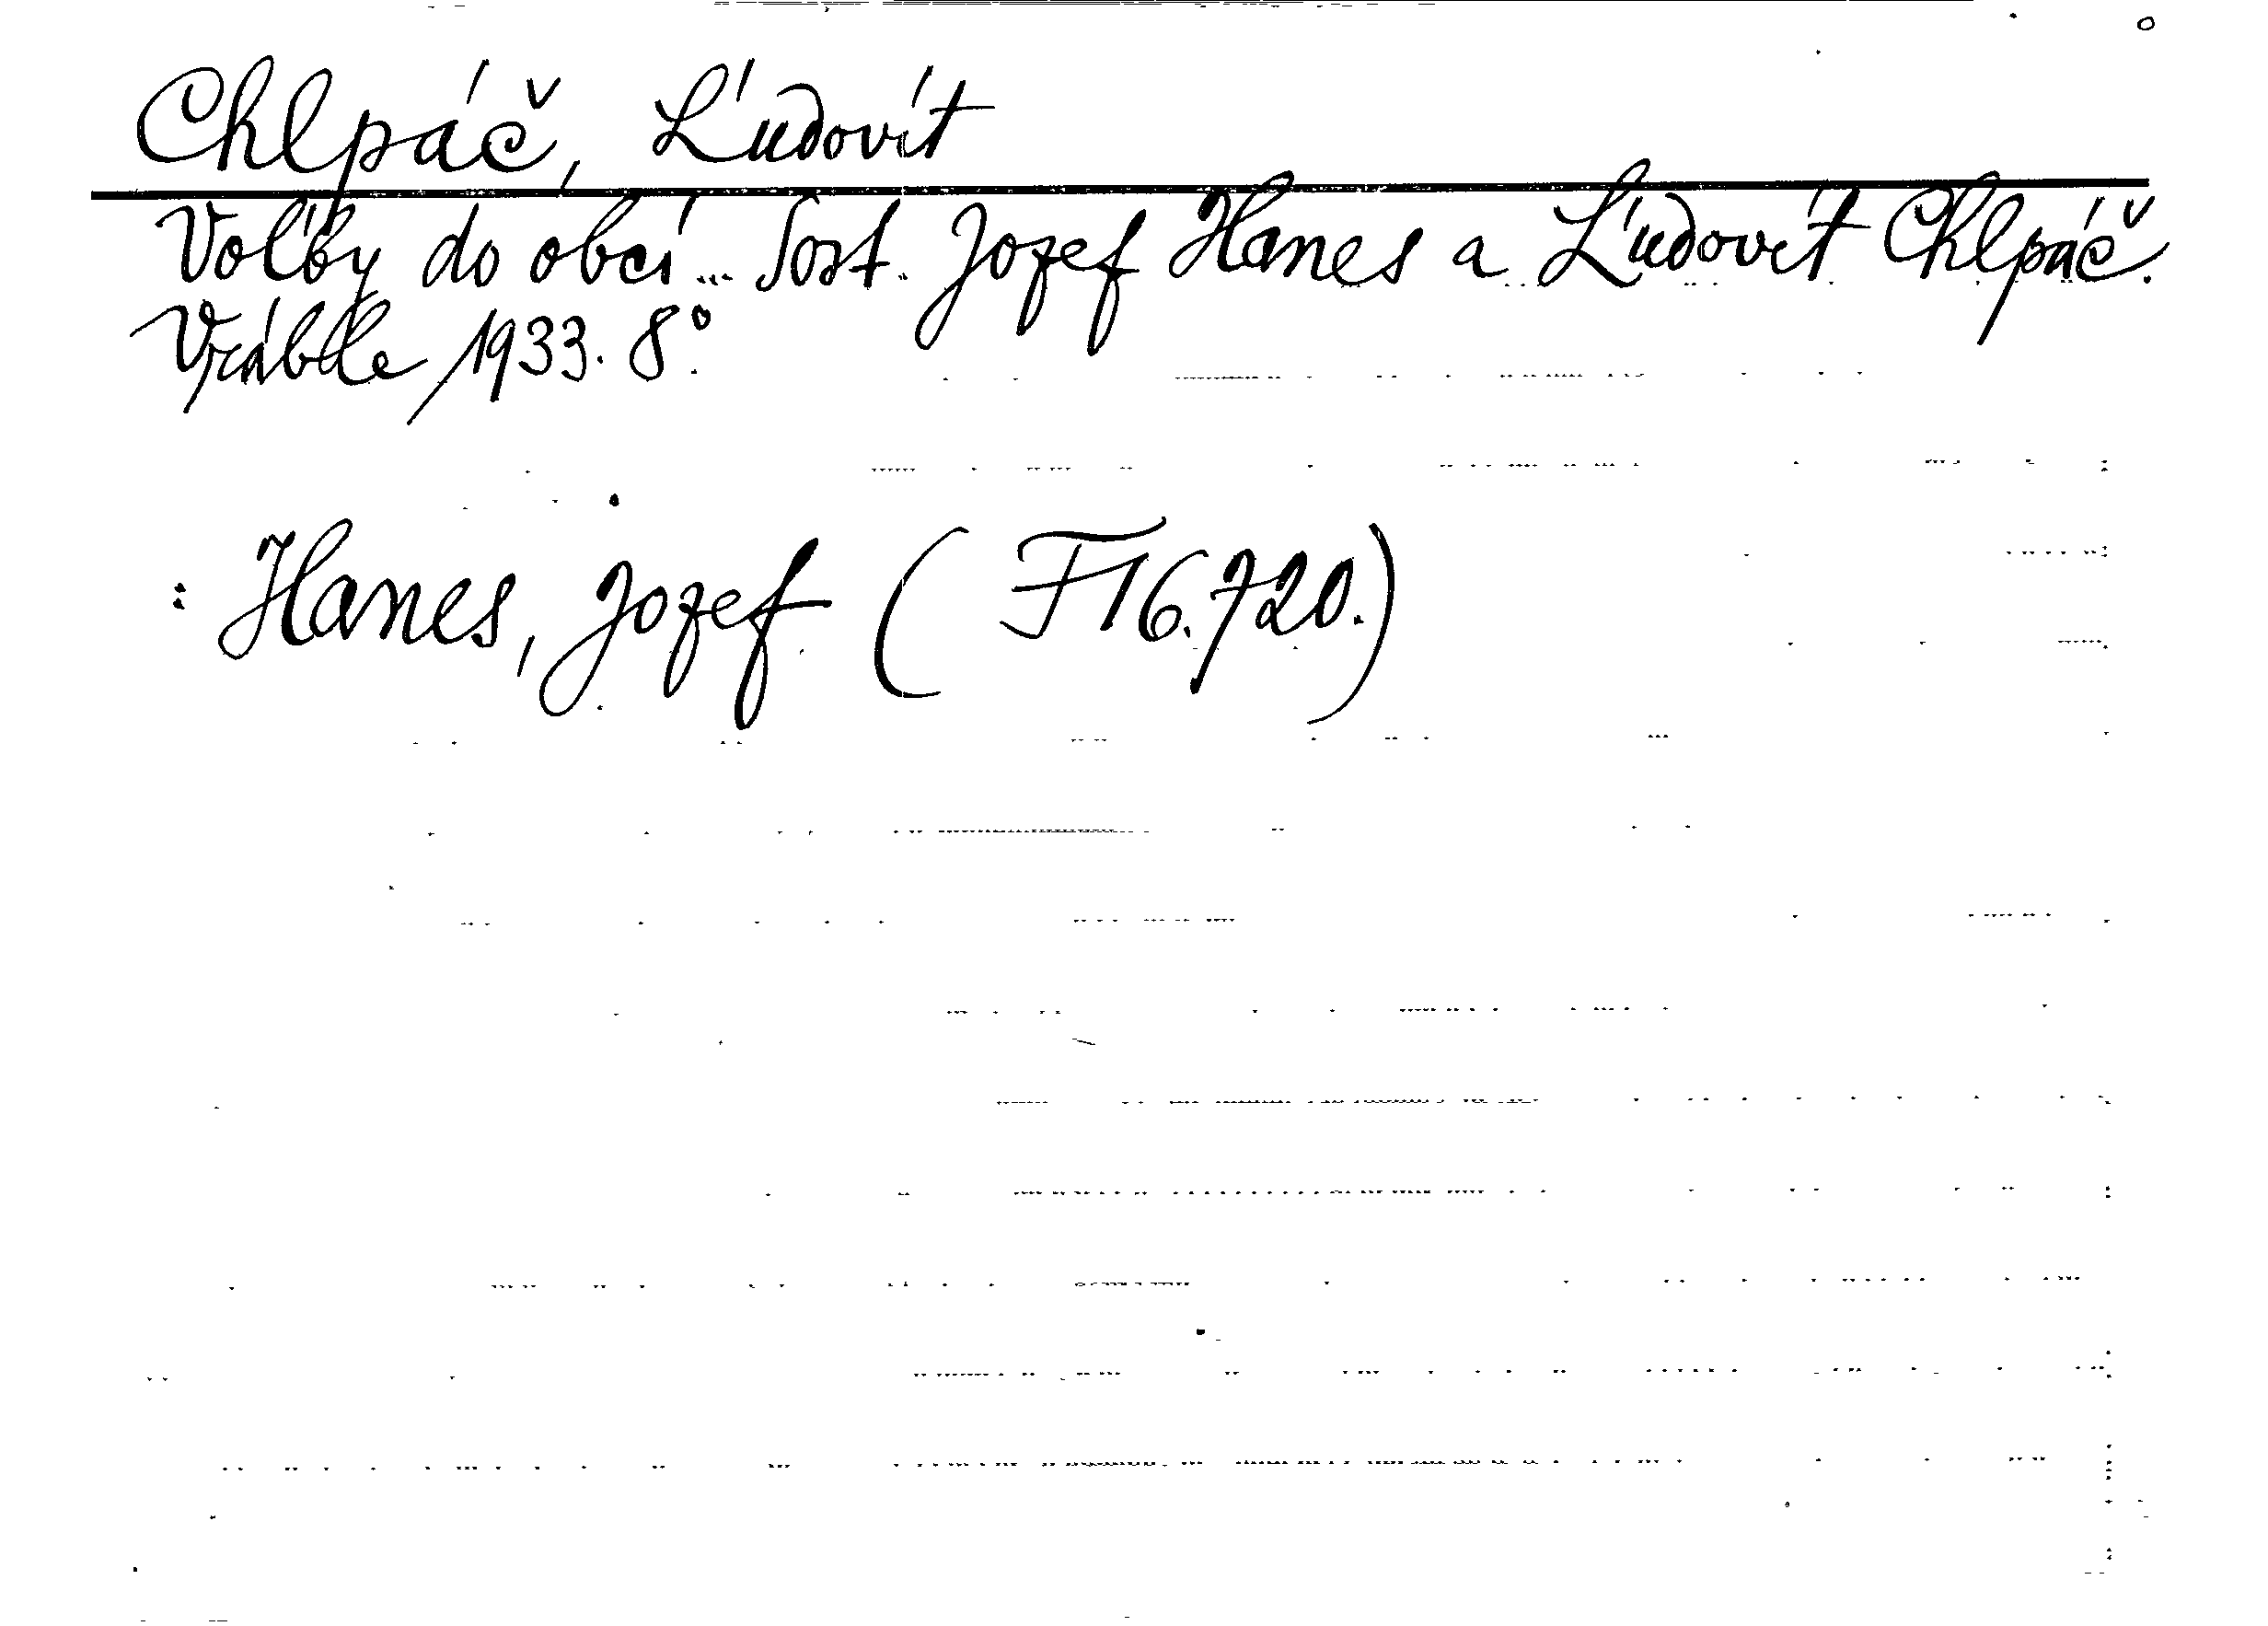 Chlpáč, Ľudovít
Voľby do obcí... Sost. Jozef Hanes a Ľudovít Chlpáč.
Vráble, 1933. 8°.
: Hanes, Jozef ( F 16.720.)